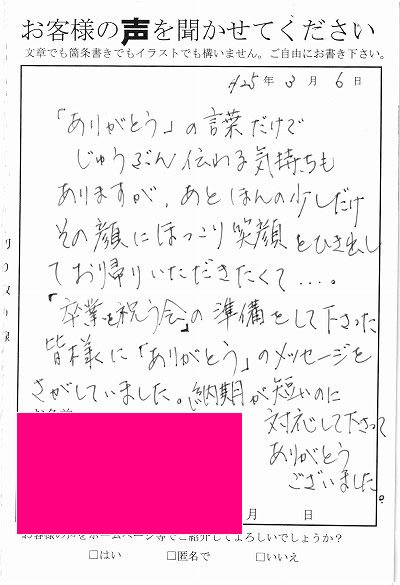 お客様の声を聞かせてください
文章でも箇条書きでもイラストでも構いません。ご自由にお書き下さい。
H25年 3月 6日
「ありがとう」の言葉だけで
じゅうぶん伝わる気持ちも
ありますが、あとほんの少しだけ
その顔にほっこり笑顔をひき出し
てお帰りいただきたくて‥‥。
「卒業を祝う会」の準備をして下さった
皆様に「ありがとう」のメッセージを
さがしていました。納期が短いのに
対応して下さって
ありがとう
ございました。
月 日
お客様の声をホームページ等でご紹介してよろしいでしょうか?
□はい □匿名で □いいえ